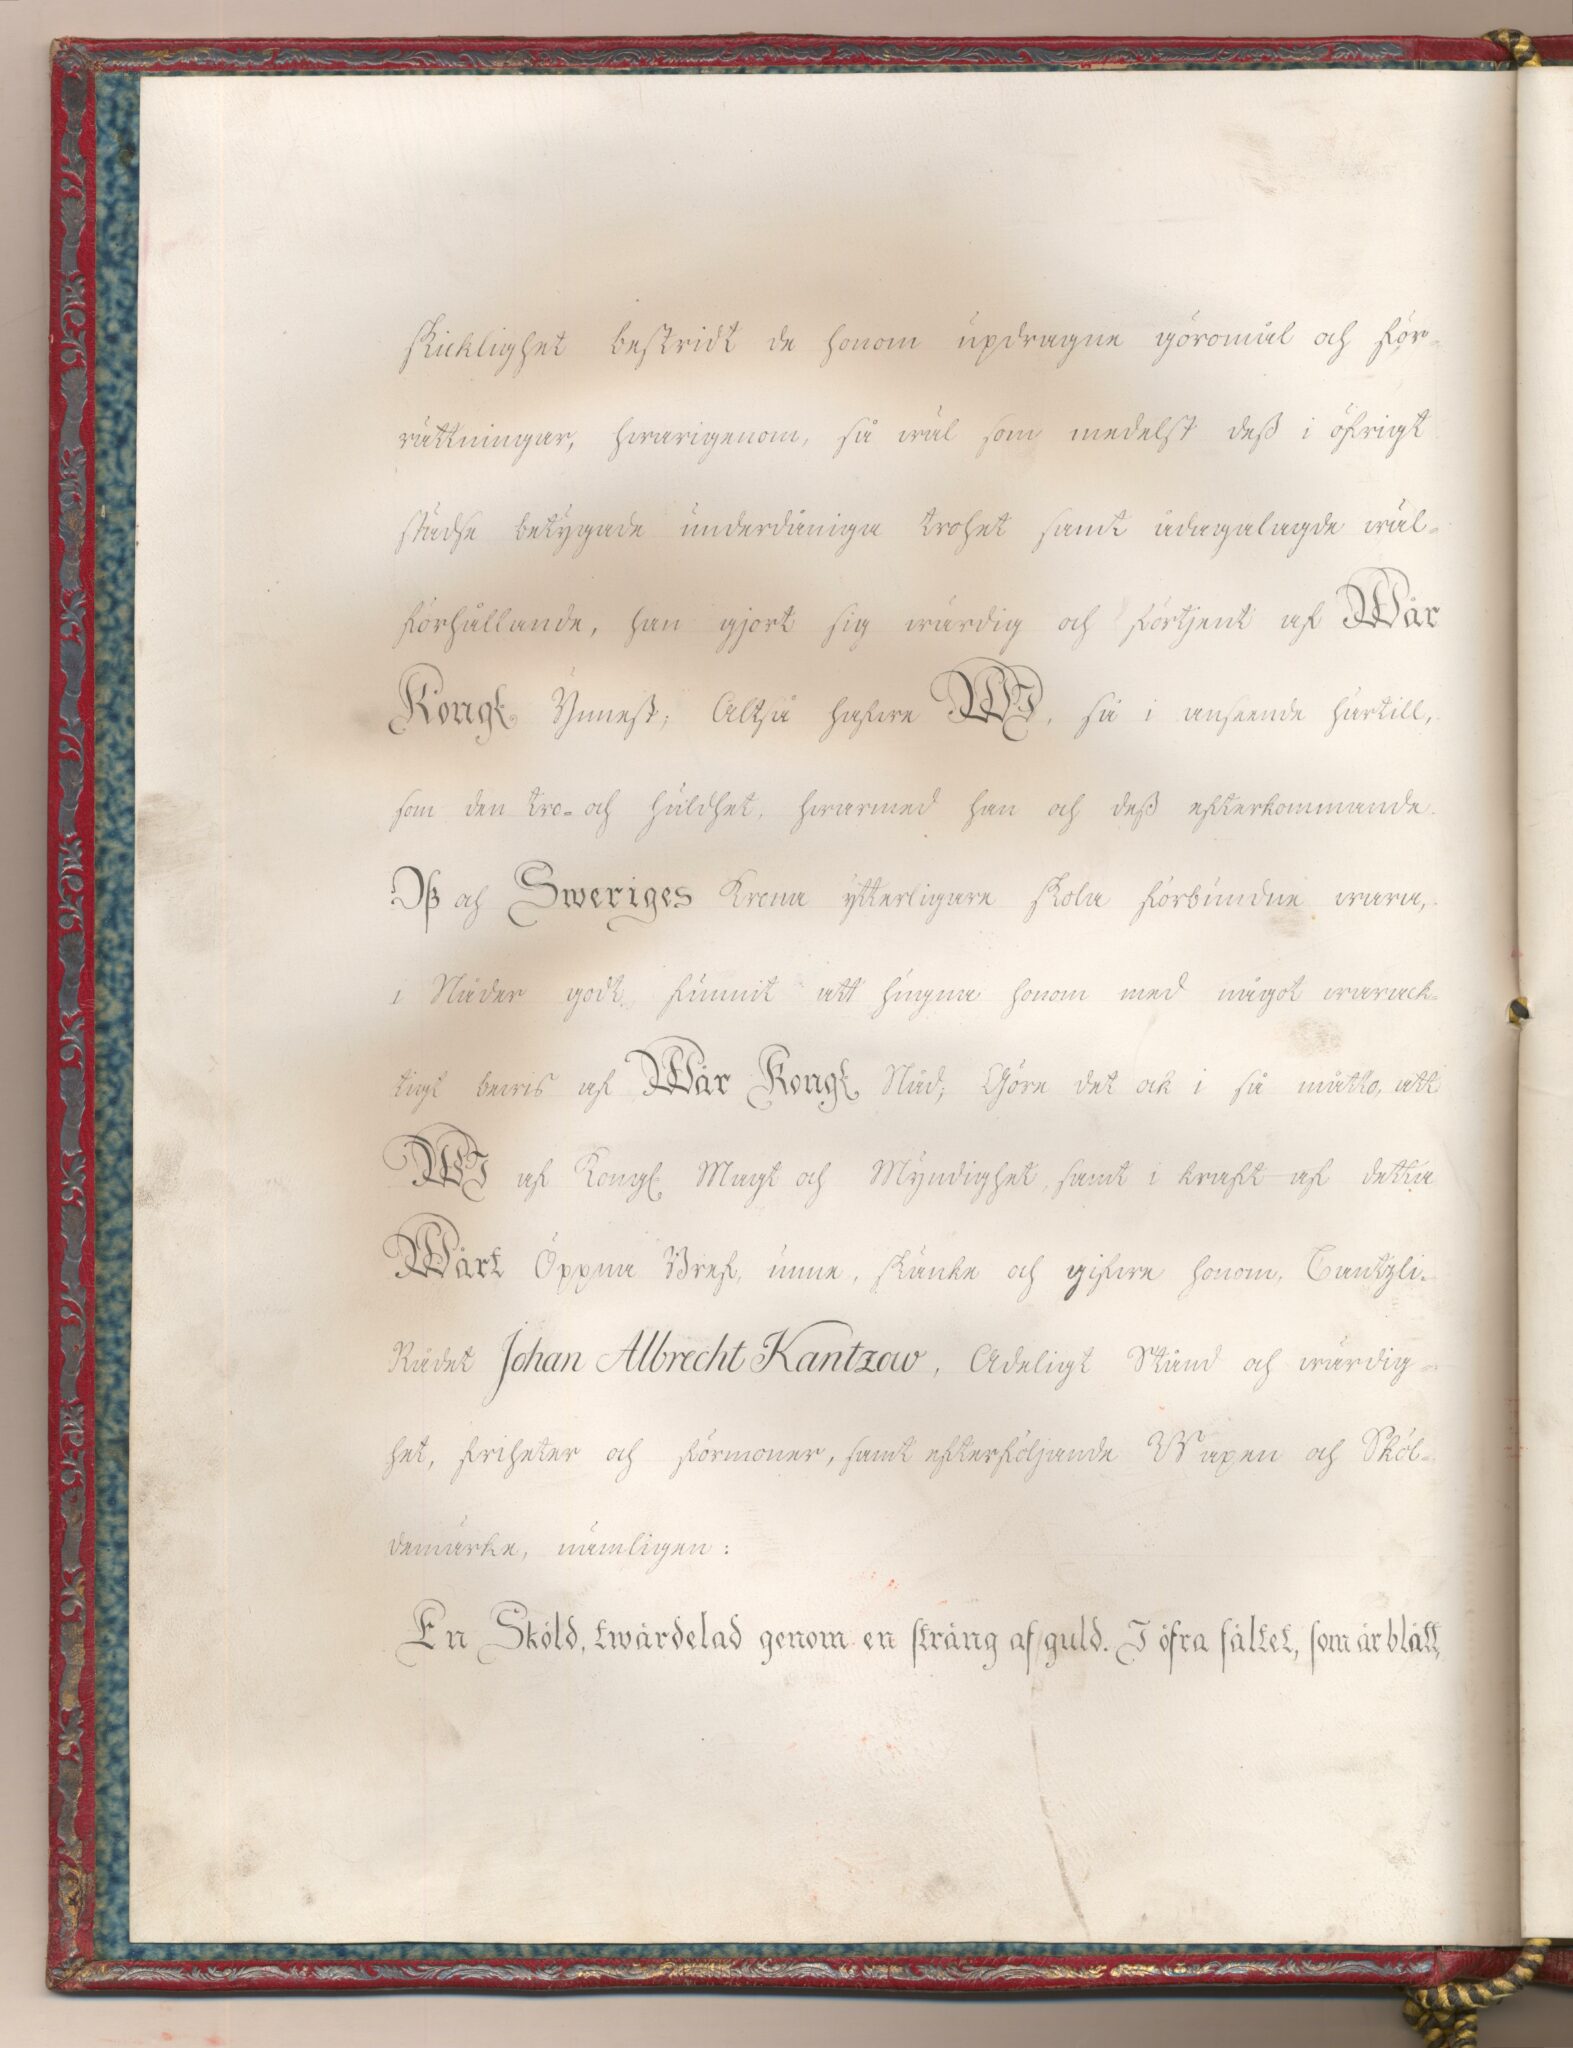 skicklighet bestridt de honom updragne göromål och för-
rättningar, hwarigenom, så wäl som medelst deß i öfrigt
städse betygade underdåniga trohet samt ådagalagde wäl-
förhållande, han gjort sig wärdig och förtjent af Wår
Kongl. Ynnest; Altså hafwe WI, så i anseende härtill,
som den tro- och huldhet, hwarmed han och deß efterkommande
Oß och Sweriges Krona ytterligare skola förbundne wara,
i Nåder godt funnit att hugna honom med något warack-
tigt bewis af Wår Kongl. Nåd; Göre det ock i så måtto, att
WI af Kongl. Magt och Myndighet, samt i kraft af detta
Wårt Öppna Bref, unne, skänke och gifwe honom, Cantzli-
Rådet Johan Albrecht Kantzow, Adeligt Stånd och wärdig-
het, friheter och förmoner, samt efterföljande Wapen och Sköl-
demärke, nämligen:
En Sköld, twärdelad genom en sträng af guld. I öfra fältet, som är blått,